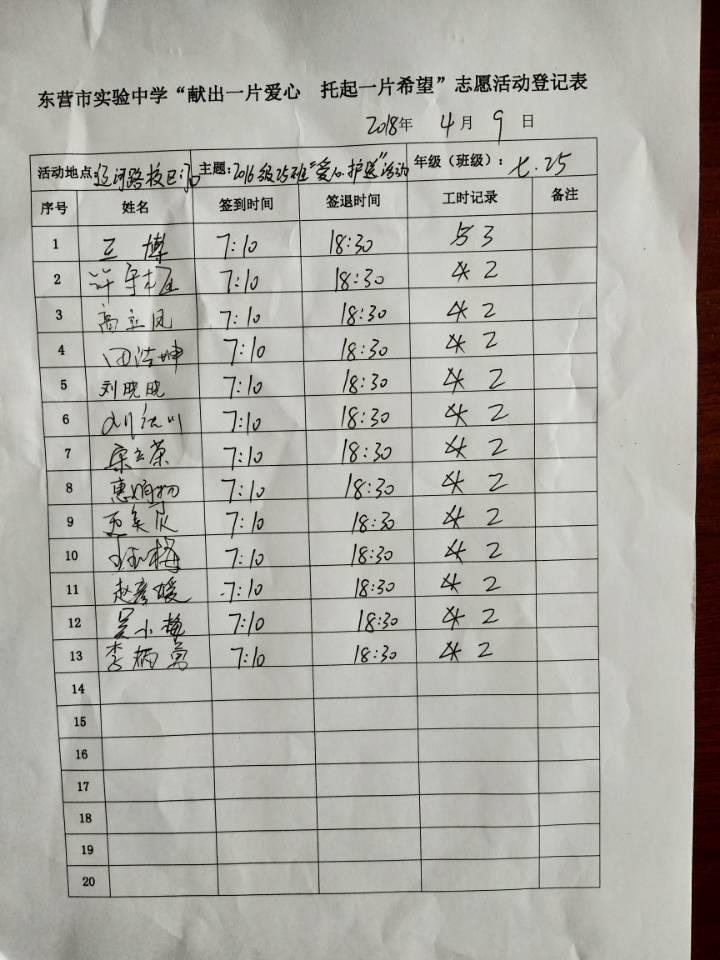 东营市实验中学“献出一片爱心 托起一片希望”志愿活动登记表
2018年 4月 9日
活动地点:辽河路校区门口 主题:2016级25班“爱心护送”活动 年级(班级): 七.25
序号 姓名 签到时间 签退时间 工时记录 备注
1 王博 7:10 18:30 3
2 7:10 18:30 2
3 高立凤 7:10 18:30 2
4 田浩坤 7:10 18:30 2
5 刘晓晓 7:10 18:30 2
6 7:10 18:30 2
7 7:10 18:30 2
8 7:10 18:30 2
9 7:10 18:30 2
10 7:10 18:30 2
11 赵彦媛 7:10 18:30 2
12 吴小艳 7:10 18:30 2
13 李炳勇 7:10 18:30 2
14
15
16
17
18
19
20